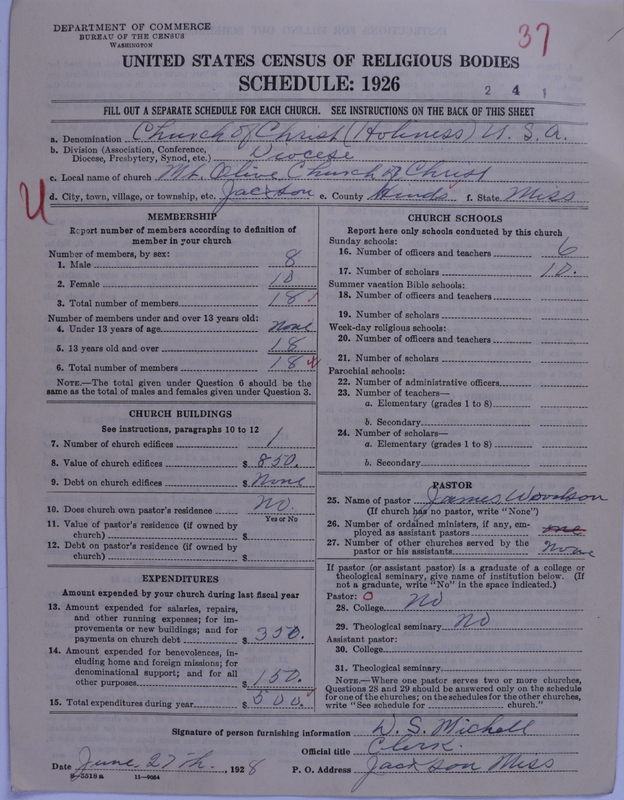 DEPARTMENT OF COMMERCE
BUREAU OF THE CENSUS
WASHINGTON
37
UNITED STATES CENSUS OF RELIGIOUS BODIES
SCHEDULE: 1926
2 4 1
FILL OUT A SEPARATE SCHEDULE FOR EACH CHURCH. SEE INSTRUCTIONS ON THE BACK OF THIS SHEET
a. Denomination Church of Christ (Holiness) U. S. A.
b. Division (Association, Conference, Diocese, Presbytery, Synod, etc.) Diocese
c. Local name of church Mt. Olive Church of Christ
U
d. City, town, village, or township, etc. Jackson e. County Hinds f. State Miss
MEMBERSHIP
Report number of members according to definition of
member in your church
Number of members, by sex:
1. Male 8
2. Female 10
3. Total number of members 18
Number of members under and over 13 years old:
4. Under 13 years of age none
5. 13 years old and over 18
6. Total number of members 18
NOTE.—The total given under Question 6 should be
same as the total of males and females given under Question 3.
CHURCH BUILDINGS
See instructions, paragraphs 10 to 12
7. Number of church edifices 1
8. Value of church edifices $ 850.
9. Debt on church edifices $ None
10. Does church own pastor's residence? No.
Yes or No
11. Value of pastor's residence (if owned by
church) $
12. Debt on pastor's residence (if owned by
church) $
EXPENDITURES
Amount expended by your church during last fiscal year
13. Amount expended for salaries, repairs,
and other running expenses; for im-
provements or new buildings; and for
payments on church debt $ 350.
14. Amount expended for benevolences, in-
cluding home and foreign missions; for
denominational support; and for all
other purposes $ 150.
15. Total expenditures during year $ 500.
CHURCH SCHOOLS
Report here only schools conducted by this church
Sunday schools:
16. Number of officers and teachers 6
17. Number of scholars 10.
Summer vacation Bible schools:
18. Number of officers and teachers
19. Number of scholars
Week-day religious schools:
20. Number of officers and teachers
21. Number of scholars
Parochial schools:
22. Number of administrative officers
23. Number of teachers—
a. Elementary (grades 1 to 8)
b. Secondary
24. Number of scholars—
a. Elementary (grades 1 to 8)
b. Secondary
PASTOR
25. Name of pastor James
(If church has no pastor, write "None")
26. Number of ordained ministers, if any, em-
ployed as assistant pastors one
27. Number of other churches served by the
pastor or his assistants none
If pastor (or assistant pastor) is a graduate of a college or
theological seminary, give name of institution below. (If
not a graduate, write "No" in the space indicated.)
Pastor: 0
28. College No
29. Theological seminary No
Assistant pastor:
30. College
31. Theological seminary
NOTE.—Where one pastor serves two or more churches,
Questions 28 and 29 should be answered only on the schedule
for one of the churches; on the schedules for the other churches,
write "See schedule for church."
Signature of person furnishing information W. S. Michell
Official title Clerk.
Date June 27th., 1928 P. O. Address Jackson Miss
8-5518a 11-9084